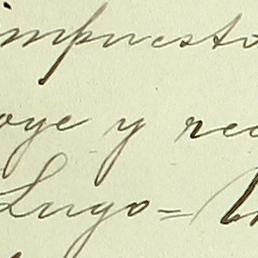 impuesto
oye y rec
Lugo=